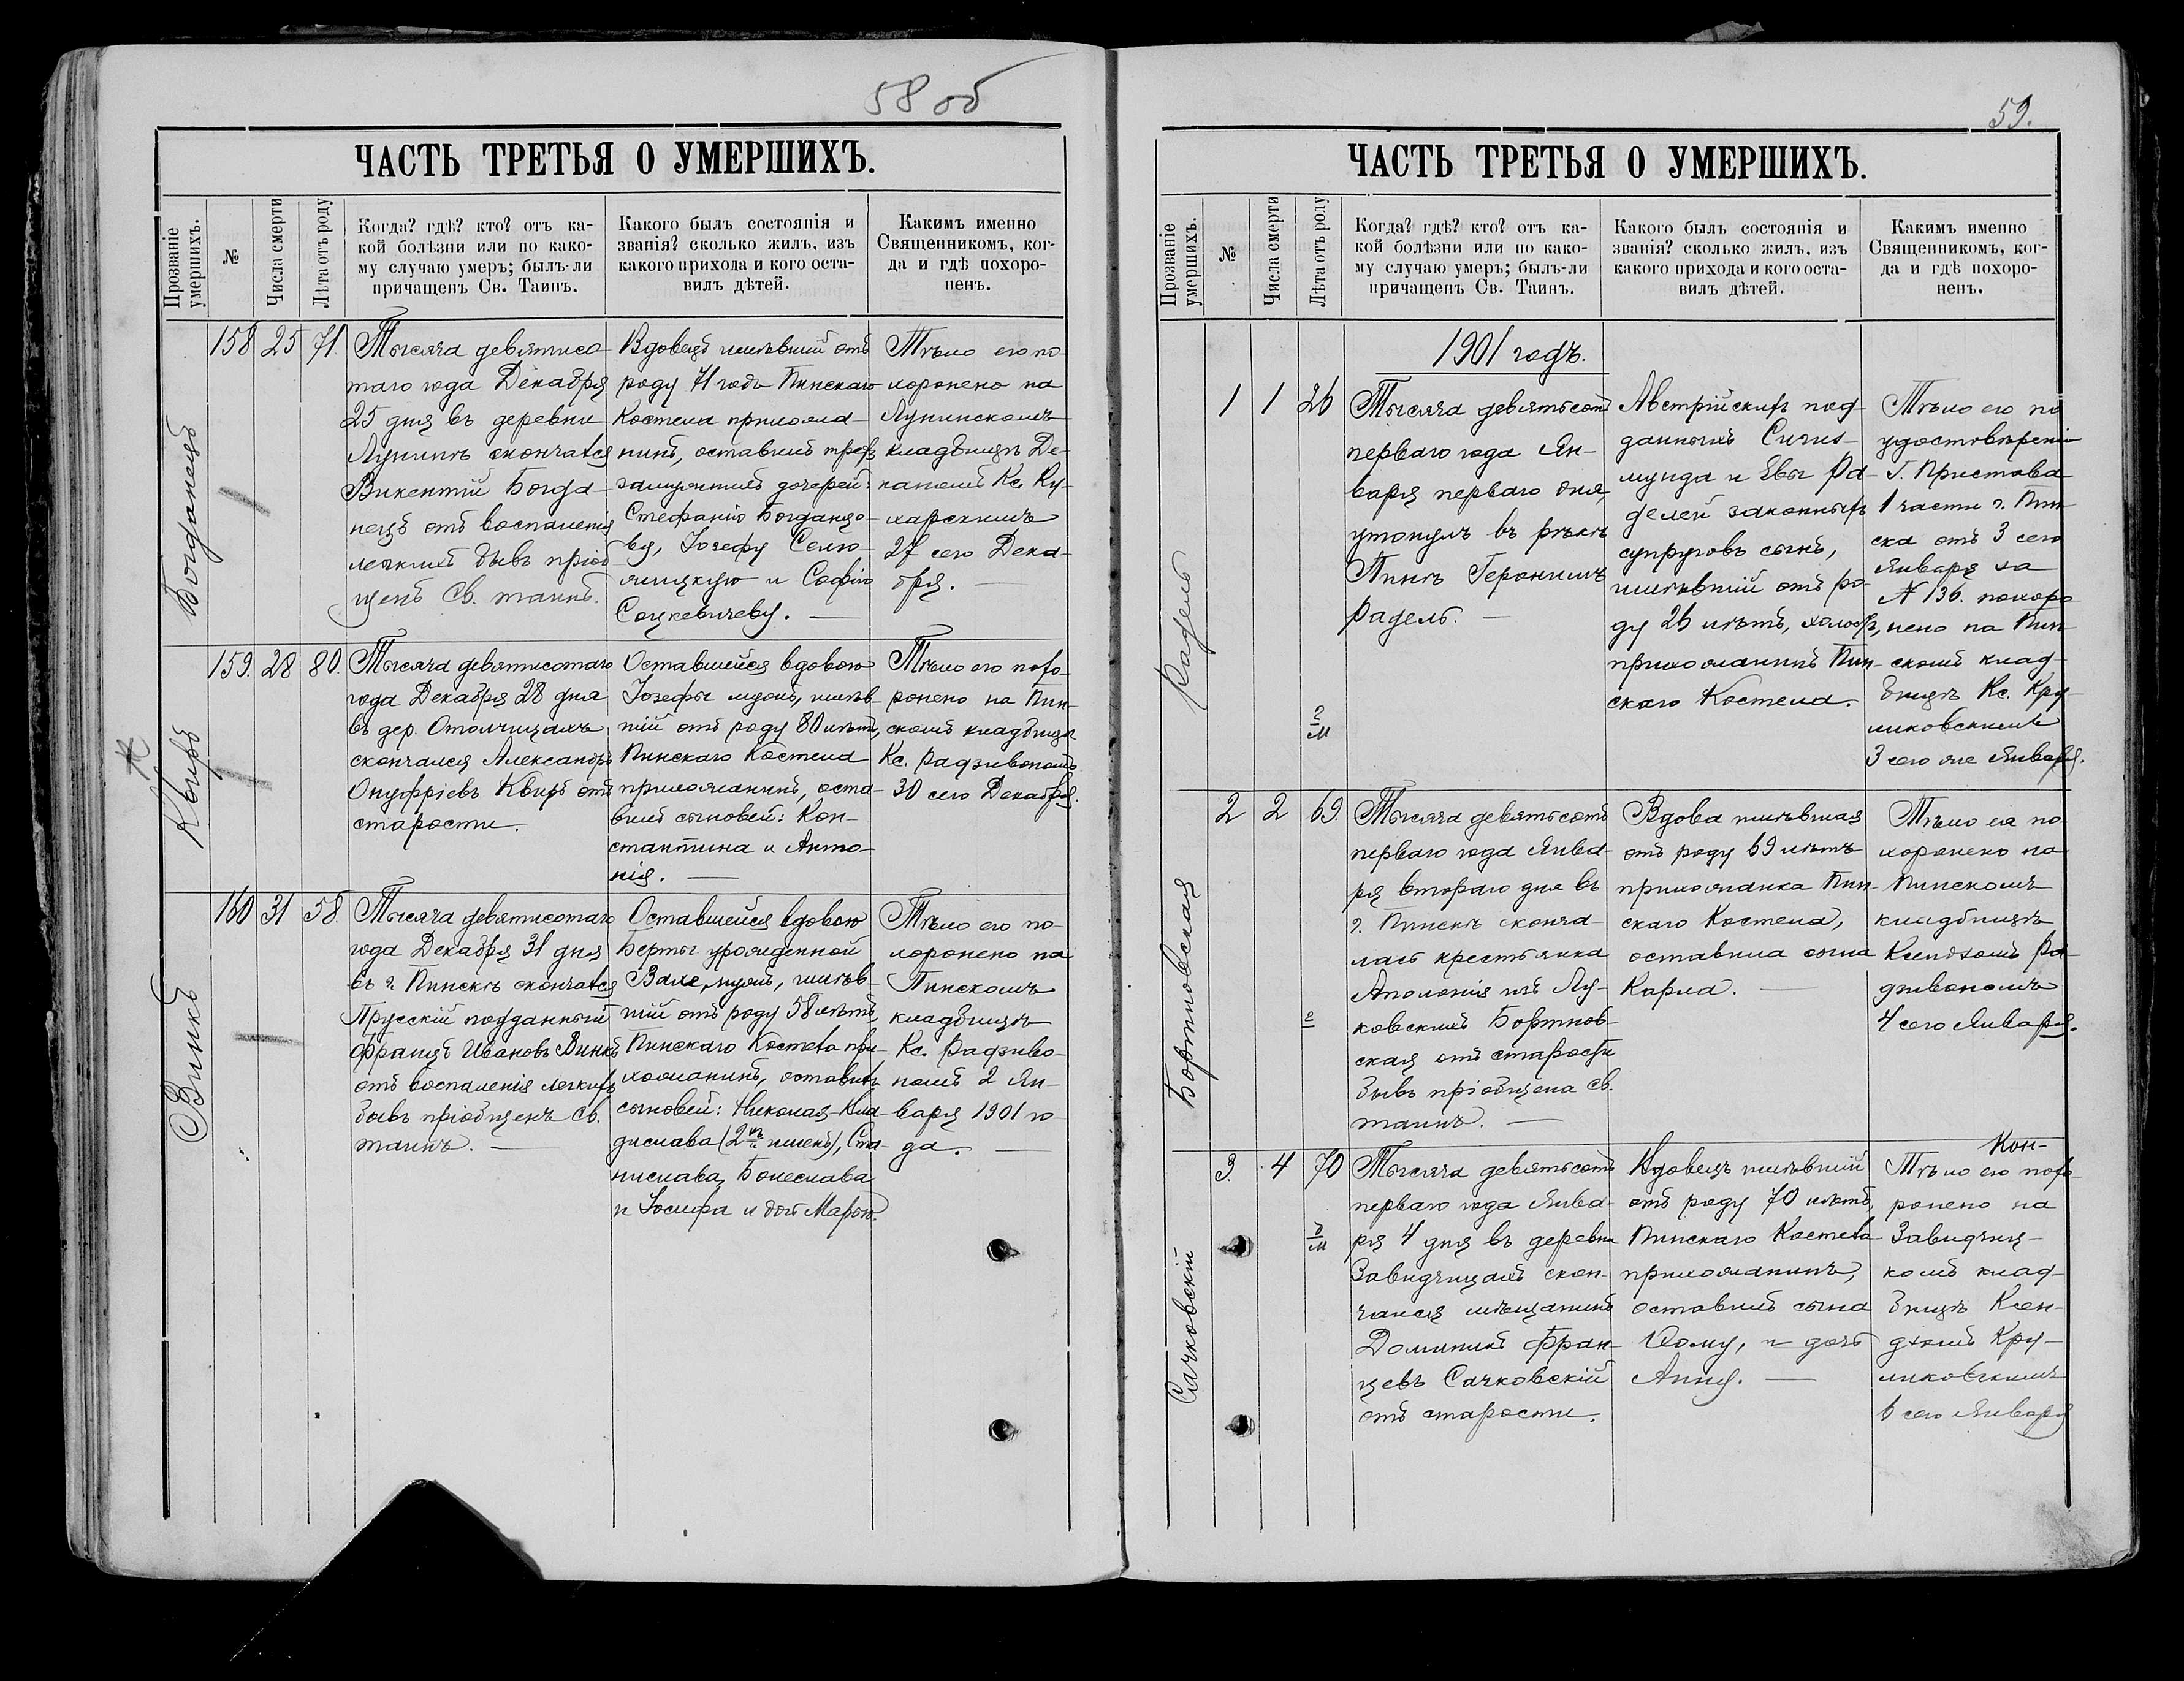 58 об
ЧАСТЬ ТРЕТЬЯ О УМЕРШИХЪ.
Прозваніе умершихъ.
№
Числа смерти
Лѣта отъ роду
Когда? гдѣ? кто? отъ ка-
кой болѣзни или по како-
му случаю умеръ; былъ-ли
причащенъ Св. Таинъ.
Какого былъ состоянія и
званія? сколько жилъ, изъ
какого прихода и кого оста-
вилъ дѣтей.
Какимъ именно
Священникомъ, ког-
да и гдѣ похоро-
ненъ.
Богданецъ
158 25 71
Тысяча девятисо-
таго года Декабря
25 дня въ деревни
Лунинѣ скончался
Викентій Богда-
нецъ отъ воспаленія
легкихъ бывъ пріоб
щенъ Св. таинъ.
Вдовецъ имѣвшій отъ
роду 71 годъ Пинскаго
Костела прихожа-
нинъ, оставилъ трехъ
замужнихъ дочерей:
Стефанію Богданцо-
ву, Іозефу
и Софію
Сацкевичеву.
Тѣло его по-
хоронено на
Лунинскомъ
кладбищѣ Де-
каномъ Кс. Ку-
харскимъ
27 сего Дека-
бря.
Квиръ
159. 28 80.
Тысяча девятисотаго
года Декабря 28 дня
въ дер. Отолчицахъ
скончался Александръ
Онуфріевъ Квиръ отъ
старости.
Оставшейся вдовою
Іозефы мужъ, имѣв-
шій отъ роду 80 лѣтъ,
Пинскаго Костела
прихожанинъ, оста-
вилъ сыновей: Кон-
стантина и Анто-
нія.
Тѣло его похо-
ронено на Пин-
скомъ кладбищѣ
Кс. Радзивономъ
30 сего Декабря.
Винкъ
160 31 58.
Тысяча девятисотаго
года Декабря 31 дня
въ г. Пинскѣ скончался
Прусскій подданный
Францъ Ивановъ Винкъ
отъ воспаленія легкихъ
бывъ пріобщенъ Св.
таинъ.
Оставшейся вдовою
Берты урожденной
мужъ, имѣв-
шій отъ роду 58 лѣтъ,
Пинскаго Костела при-
хожанинъ, оставилъ
сыновей: Николая-Вла-
дислава (2хъ именъ), Ста-
нислава, Болеслава
и Іосифа и дочь Марью.
Тѣло его по-
хоронено на
Пинскомъ
кладбищѣ
Кс. Радзиво-
номъ 2 Ян-
варя 1901 го-
да.
59.
ЧАСТЬ ТРЕТЬЯ О УМЕРШИХЪ.
Прозваніе умершихъ.
№
Числа смерти
Лѣта отъ роду
Когда? гдѣ? кто? отъ ка-
кой болѣзни или по како-
му случаю умеръ; былъ-ли
причащенъ Св. Таинъ.
Какого былъ состоянія и
званія? сколько жилъ, изъ
какого прихода и кого оста-
вилъ дѣтей.
Какимъ именно
Священникомъ, ког-
да и гдѣ похоро-
ненъ.
1901 годъ.
Радель
1 1 26
Тысяча девятьсотъ
перваго года Ян-
варя перваго дня,
утонулъ въ рѣкѣ
Пинѣ Геронимъ
Радель.
Австрійскихъ под-
данныхъ Сигиз-
мунда и Евы Ра-
делей законныхъ
супруговъ сынъ,
имѣвшій отъ ро-
ду 26 лѣтъ, холостъ,
прихожанинъ Пин-
скаго Костела.
Тѣло его по
удостовѣренію
Г. Пристава
1 части г. Пин-
ска отъ 3 сего
Января за
№ 136. похоро
нено на Пин-
скомъ клад-
бищѣ Кс. Кру-
ликовскимъ
3 сего же Января.
Бортновская
2 2 69.
Тысяча девятьсотъ
перваго года Янва-
ря втораго дня въ
г. Пинскѣ сконча-
лась крестьянка
Аполонія изъ Лу-
ковскихъ Бортнов-
ская отъ старости
бывъ пріобщена Св.
таинъ.
Вдова имѣвшая
отъ роду 69 лѣтъ
прихожанка Пин-
скаго Костела,
оставила сына
Карла.
Тѣло ея по-
хоронено на
Пинскомъ
кладбищѣ
Ксендзомъ Ра-
дзивономъ
4 сего Января.
Сачковскій
3. 4 70
Тысяча девятьсотъ
перваго года Янва-
ря 4 дня въ деревни
Завидчицахъ скон-
чался мѣщанинъ
Доминикъ Фран-
цевъ Сачковскій
отъ старости.
Вдовецъ имѣвшій
отъ роду 70 лѣтъ,
Пинскаго Костела
прихожанинъ,
оставилъ сына
Ѳому, и дочь
Анну.
Кон-
Тѣло его похо-
ронено на
Завидчиц-
комъ клад-
бищѣ Ксен-
дзомъ Кру-
ликовскимъ
6 сего Января